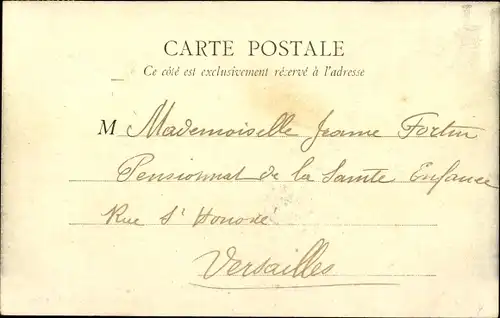 CARTE POSTALE
Ce côté est exclusivement réservé à l'adresse
M Mademoiselle Jeanne Fortin
Pensionnat de la Sainte Enfance
Rue St Honoré
Versailles